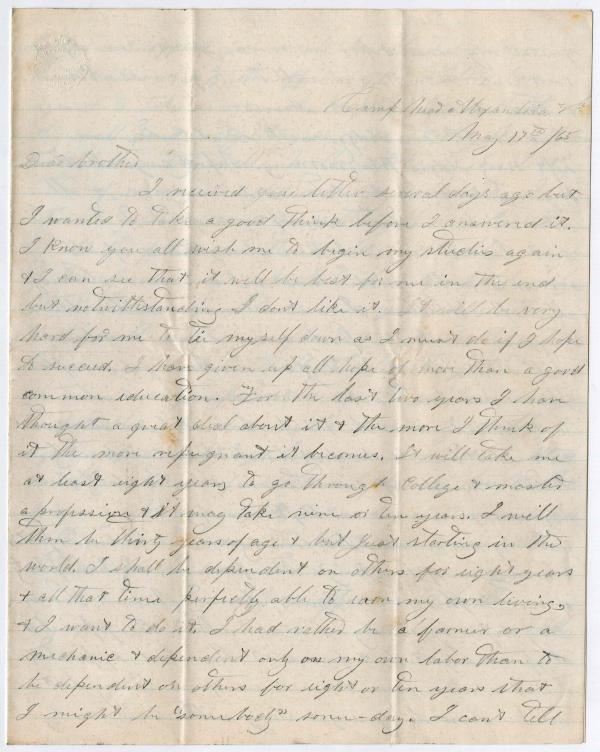 Camp near Alexandria Va
May 17th /65
Dear Brother
I received your letter several days ago but
I wanted to take a good think before I answered it.
I know you all wish me to begin my studies again
& I can see that it will be best for me in the end
but notwithstanding I don't like it. It will be very
hard for me to tie myself down as I must do if I hope
to succeed. I have given up all hope of more than a good
common education. For the last two years I have
thought a great deal about it & the more I think of
it the more repugnant it becomes. It will take me
at least eight years to go through College & master
a profession & it may take nine or ten years. I will
then be thirty years of age & but just starting in the
world. I shall be dependent on others for eight years
& all that time perfectly able to earn my own living,
& I want to do it. I had rather be a farmer or a
mechanic & dependent only on my own labor than to
be dependent on others for eight or ten years that
I might be "somebody" some-day. I can't tell